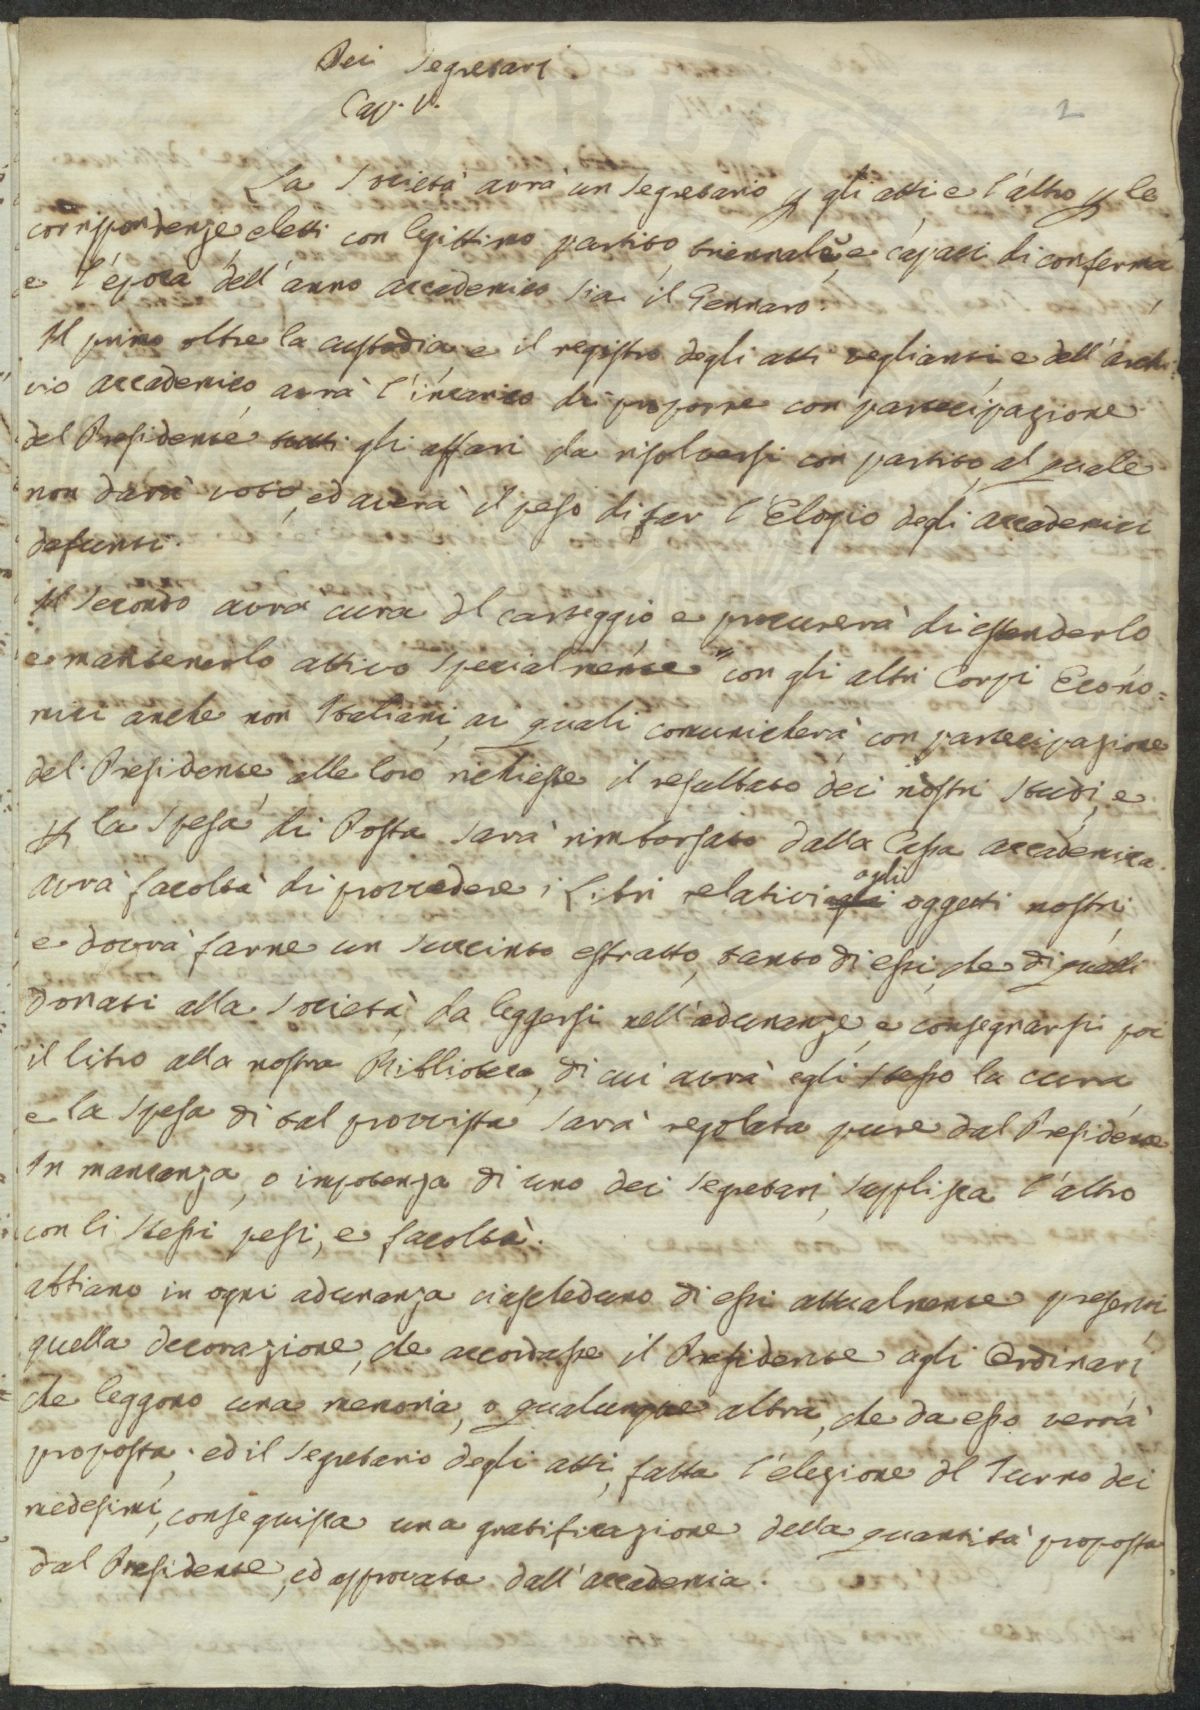 Dei Segretari
Cap. V.
2
La Società avrà un Segretario p gli atti, e l'altro p le
corrispondenze, eletti con legittimo partito triennale, e capaci di conferma
e l'epoca dell'anno accademico sia il Gennaro.
Il primo oltre la custodia, e il registro degli atti veglianti e dell'archi-
vio accademico avrà l'incarico di proporre con partecipazione
del Presidente tutti gli affari da risolversi con partito, al quale
non darà voto, ed averà il peso di far l'Elogio degli accademici
defunti.
Il Secondo avrà cura del carteggio, e procurerà di estenderlo
e mantenerlo attivo specialmente con gli altri Corpi Econo=
mici anche non Italiani, ai quali comunicherà, con partecipazione
del Presidente, alle loro richieste il resultato dei nostri Studi, e
p la Spesa di Posta sarà rimborsato dalla Cassa accademica.
avrà facoltà di provvedere i Libri relativi agli oggetti nostri,
e dovrà farne un succinto estratto, tanto di essi, che di quelli
donati alla Società, da leggersi nell'adunanze, e consegnarsi poi
il libro alla nostra Biblioteca, di cui avrà egli stesso la cura,
e la Spesa di tal provvista sarà regolata pure dal Presidente
In mancanza, o impotenza di uno dei Segretari, supplisca l'altro
con li stessi pesi, e facoltà.
abbiano in ogni adunanza ciascheduno di essi attualmente presenti
quella decorazione, che accordasse il Presidente agli Ordinari
che leggono una memoria, o qualunque altra, che da esso verrà
proposta; ed il Segretario degli atti, fatta l'elezione del Turno dei
medesimi, conseguisca una gratificazione della quantità proposta
dal Presidente, ed approvata dall'accademia.